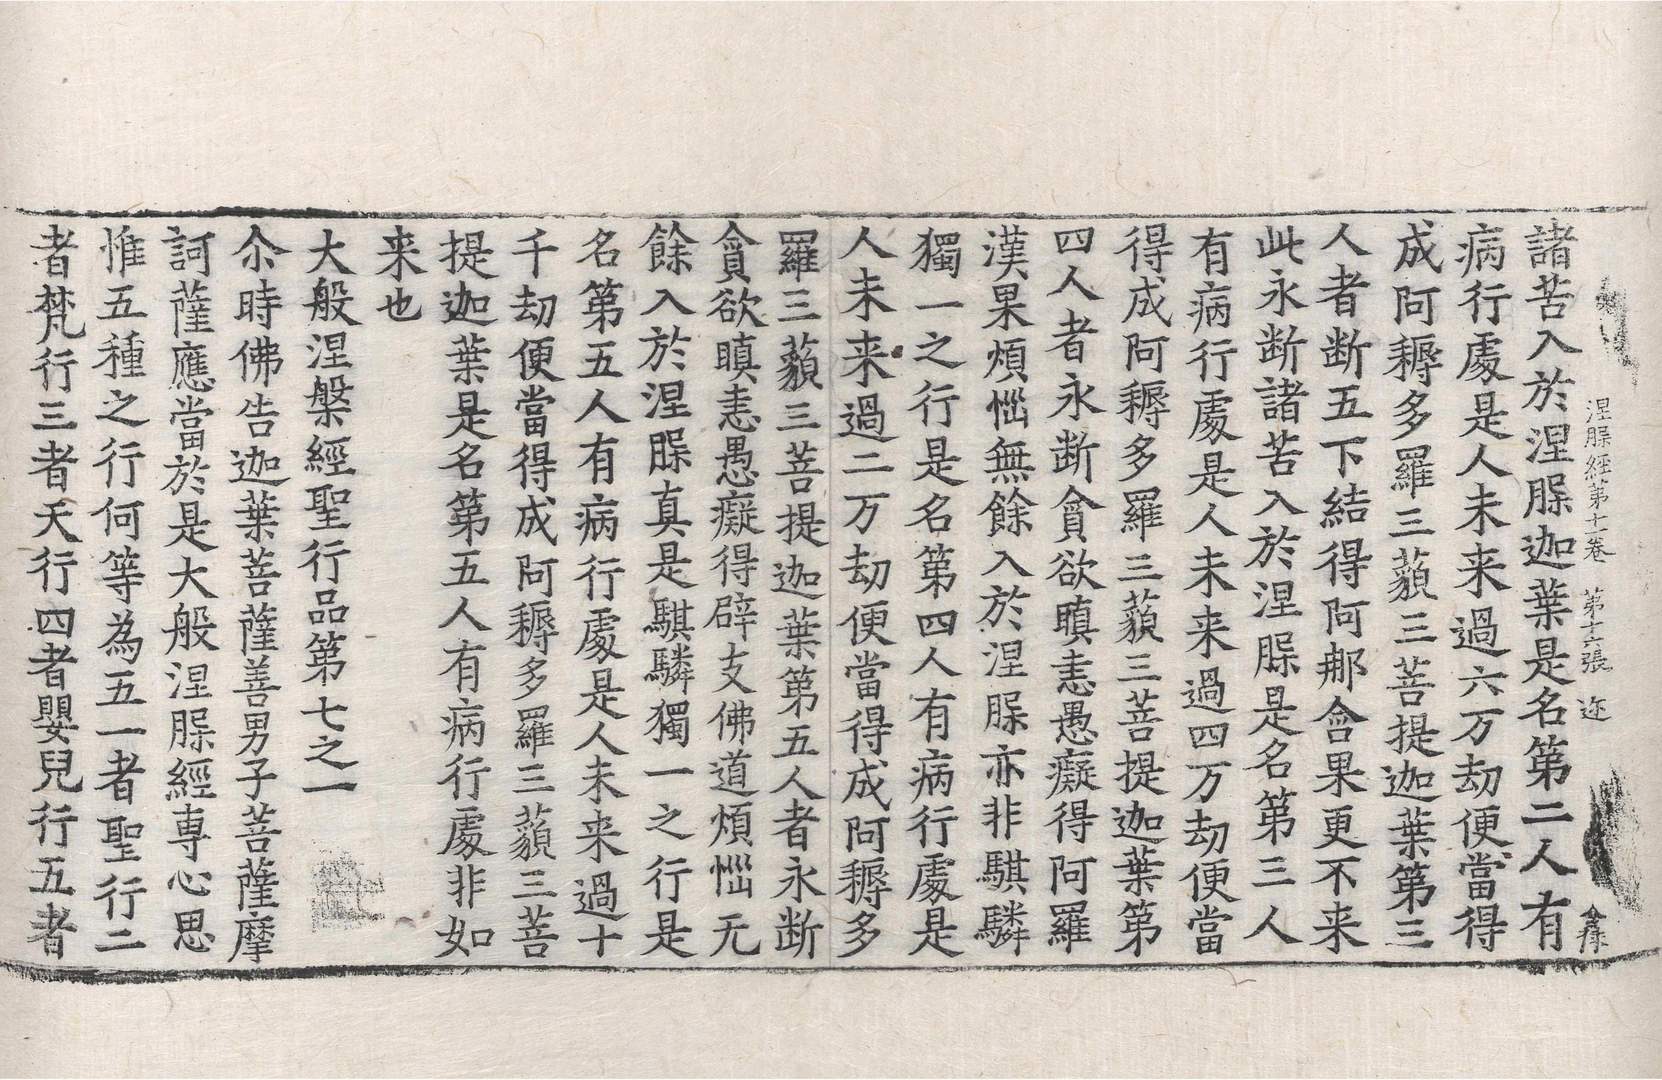 涅䏶經第十一卷　第十六張　迩
諸苦入於涅䏶迦葉是名第二人有
病行處是人未来過六万劫便當得
成阿耨多羅三藐三菩提迦葉第三
人者断五下結得阿那含果更不来
此永断諸苦入於涅䏶是名第三人
有病行處是人未来過四万劫便當
得成阿耨多羅三藐三菩提迦葉第
四人者永断貪欲瞋恚愚癡得阿羅
漢果煩惱無餘入於涅䏶亦非騏驎
獨一之行是名第四人有病行處是
人未来過二万劫便當得成阿耨多
羅三藐三菩提迦葉第五人者永断
貪欲瞋恚愚癡得辟支佛道煩惱无
餘入於涅䏶真是騏驎獨一之行是
名第五人有病行處是人未来過十
千劫便當得成阿耨多羅三藐三菩
提迦葉是名第五人有病行處非如
来也
大般涅槃經聖行品第七之一
尒時佛告迦葉菩薩善男子菩薩摩
訶薩應當於是大般涅䏶經専心思
惟五種之行何等為五一者聖行二
者梵行三者天行四者嬰兒行五者